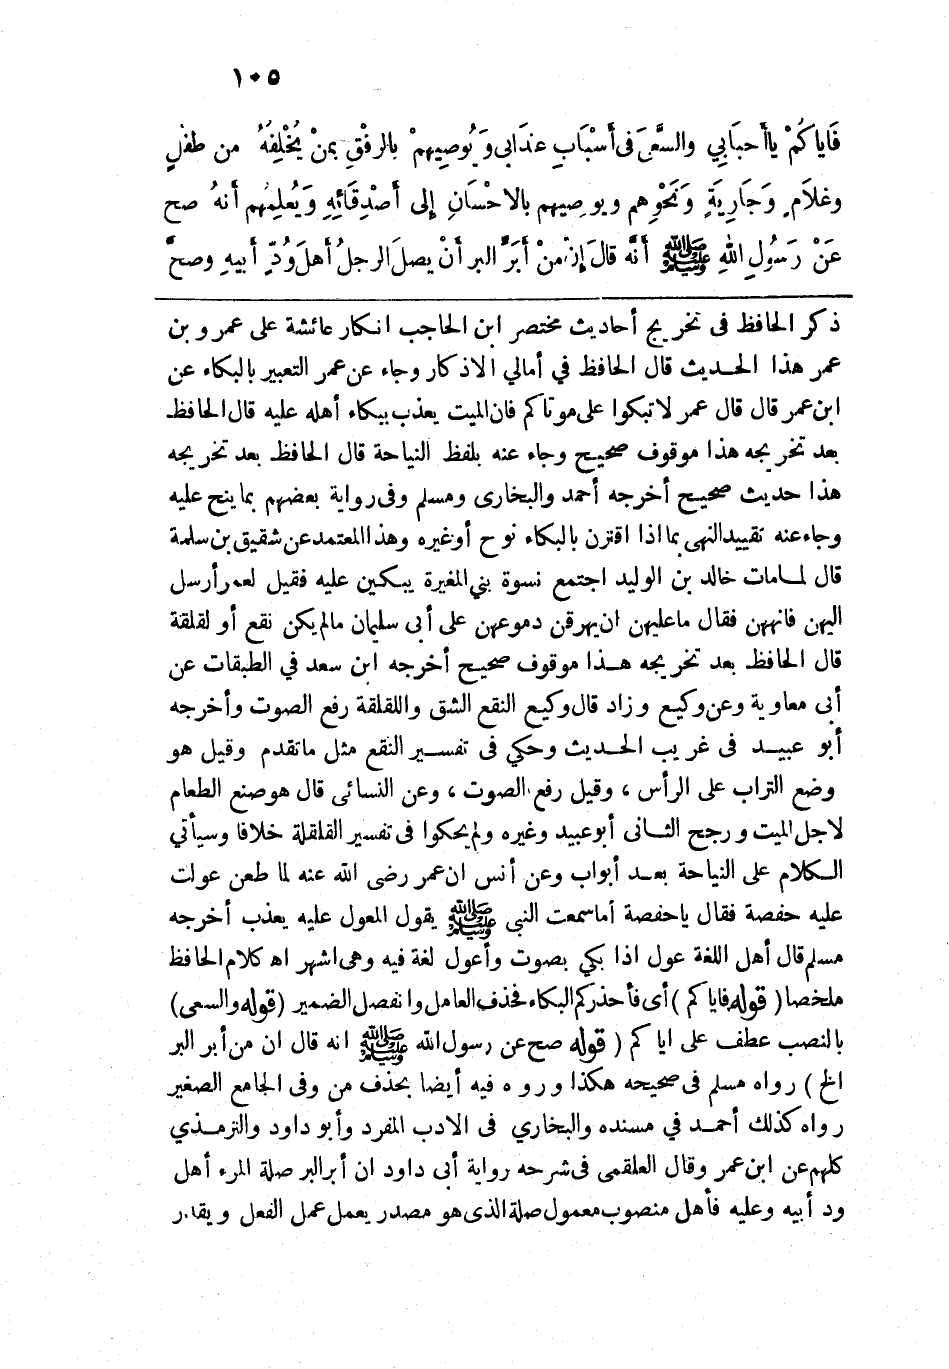 ١٠٥
فَايا كُمْ ياأَحبَابِي والسَّعْىَ فى أَسْبَابِ عذَابى وَيُوصِيهِمْ بالرفْقِ بِمنْ يُخْلِفُهُ من طفْلٍ
وغلاَمٍ وَجَارِيَةٍ وَنَحْوِهِم ويوصِيهم بالاحْسَانِ إلى أصْدِقَائِهِ وَيُعلِمُهم أَنهُ صح
عَنْ رَسُولِ اللهِ ﷺ أنَّه قالَ إِنَّ منْ أَبَرِّ البر أنْ يصلَ الرجلُ أهلَ وُدِّ أبيهِ وصحَّ
ذكر الحافظ فى تخريج أحاديث مختصر ابن الحاجب انكار عائشة على عمر وبن
عمر هذا الحديث قال الحافظ في أمالي الاذكار وجاء عن عمر التعبير بالبكاء عن
ابن عمر قال قال عمر لاتبكوا على موتاكم فان الميت يعذب ببكاء أهله عليه قال الحافظ
بعد تخريجه هذا موقوف صحيح وجاء عنه بلفظ النياحة قال الحافظ بعد تخريجه
هذا حديث صحيح أخرجه أحمد والبخارى ومسلم وفى رواية بعضهم بما ينح عليه
وجاء عنه تقييد النهى بما اذا اقترن بالبكاء نوح أوغيره وهذا المعتمد عن شقيق بن سلمة
قال لما مات خالد بن الوليد اجتمع نسوة بني المغيرة يبكين عليه فقيل لعمر أرسل
اليهن فانههن فقال ماعليهن ان يهرقن دموعهن على أبى سليمان مالم يكن نقع أو لقلقة
قال الحافظ بعد تخريجه هذا موقوف صحيح أخرجه ابن سعد في الطبقات عن
أبى معاوية وعن وكيع وزاد قال وكيع النقع الشق واللقلقة رفع الصوت وأخرجه
أبو عبيد فى غريب الحديث وحكي فى تفسير النقع مثل ماتقدم وقيل هو
وضع التراب على الرأس ، وقيل رفع الصوت ، وعن النسائى قال هو صنع الطعام
لاجل الميت ورجح الثانى أبوعبيد وغيره ولم يحكوا فى تفسير القلقلة خلافا وسيأتي
الكلام على النياحة بعد أبواب وعن أنس ان عمر رضى الله عنه لما طعن عولت
عليه حفصة فقال ياحفصة أما سمعت النبى ﷺ يقول المعول عليه يعذب أخرجه
مسلم قال أهل اللغة عول اذا بكي بصوت وأعول لغة فيه وهى اشهر اه كلام الحافظ
ملخصا (قوله فاياكم) أى فأحذركم البكاء فحذف العامل وانفصل الضمير (قوله والسعى)
بالنصب عطف على اياكم (قوله صح عن رسول الله ﷺ انه قال ان من أبر البر
الخ) رواه مسلم فى صحيحه هكذا ورو ه فيه أيضا بحذف من وفى الجامع الصغير
رواه كذلك أحمد في مسنده والبخاري فى الادب المفرد وأبو داود والترمذي
كلهم عن ابن عمر وقال العلقمى فى شرحه رواية أبى داود ان أبر البر صلة المرء أهل
ود أبيه وعليه فأهل منصوب معمول صلة الذى هو مصدر يعمل عمل الفعل ويقدر